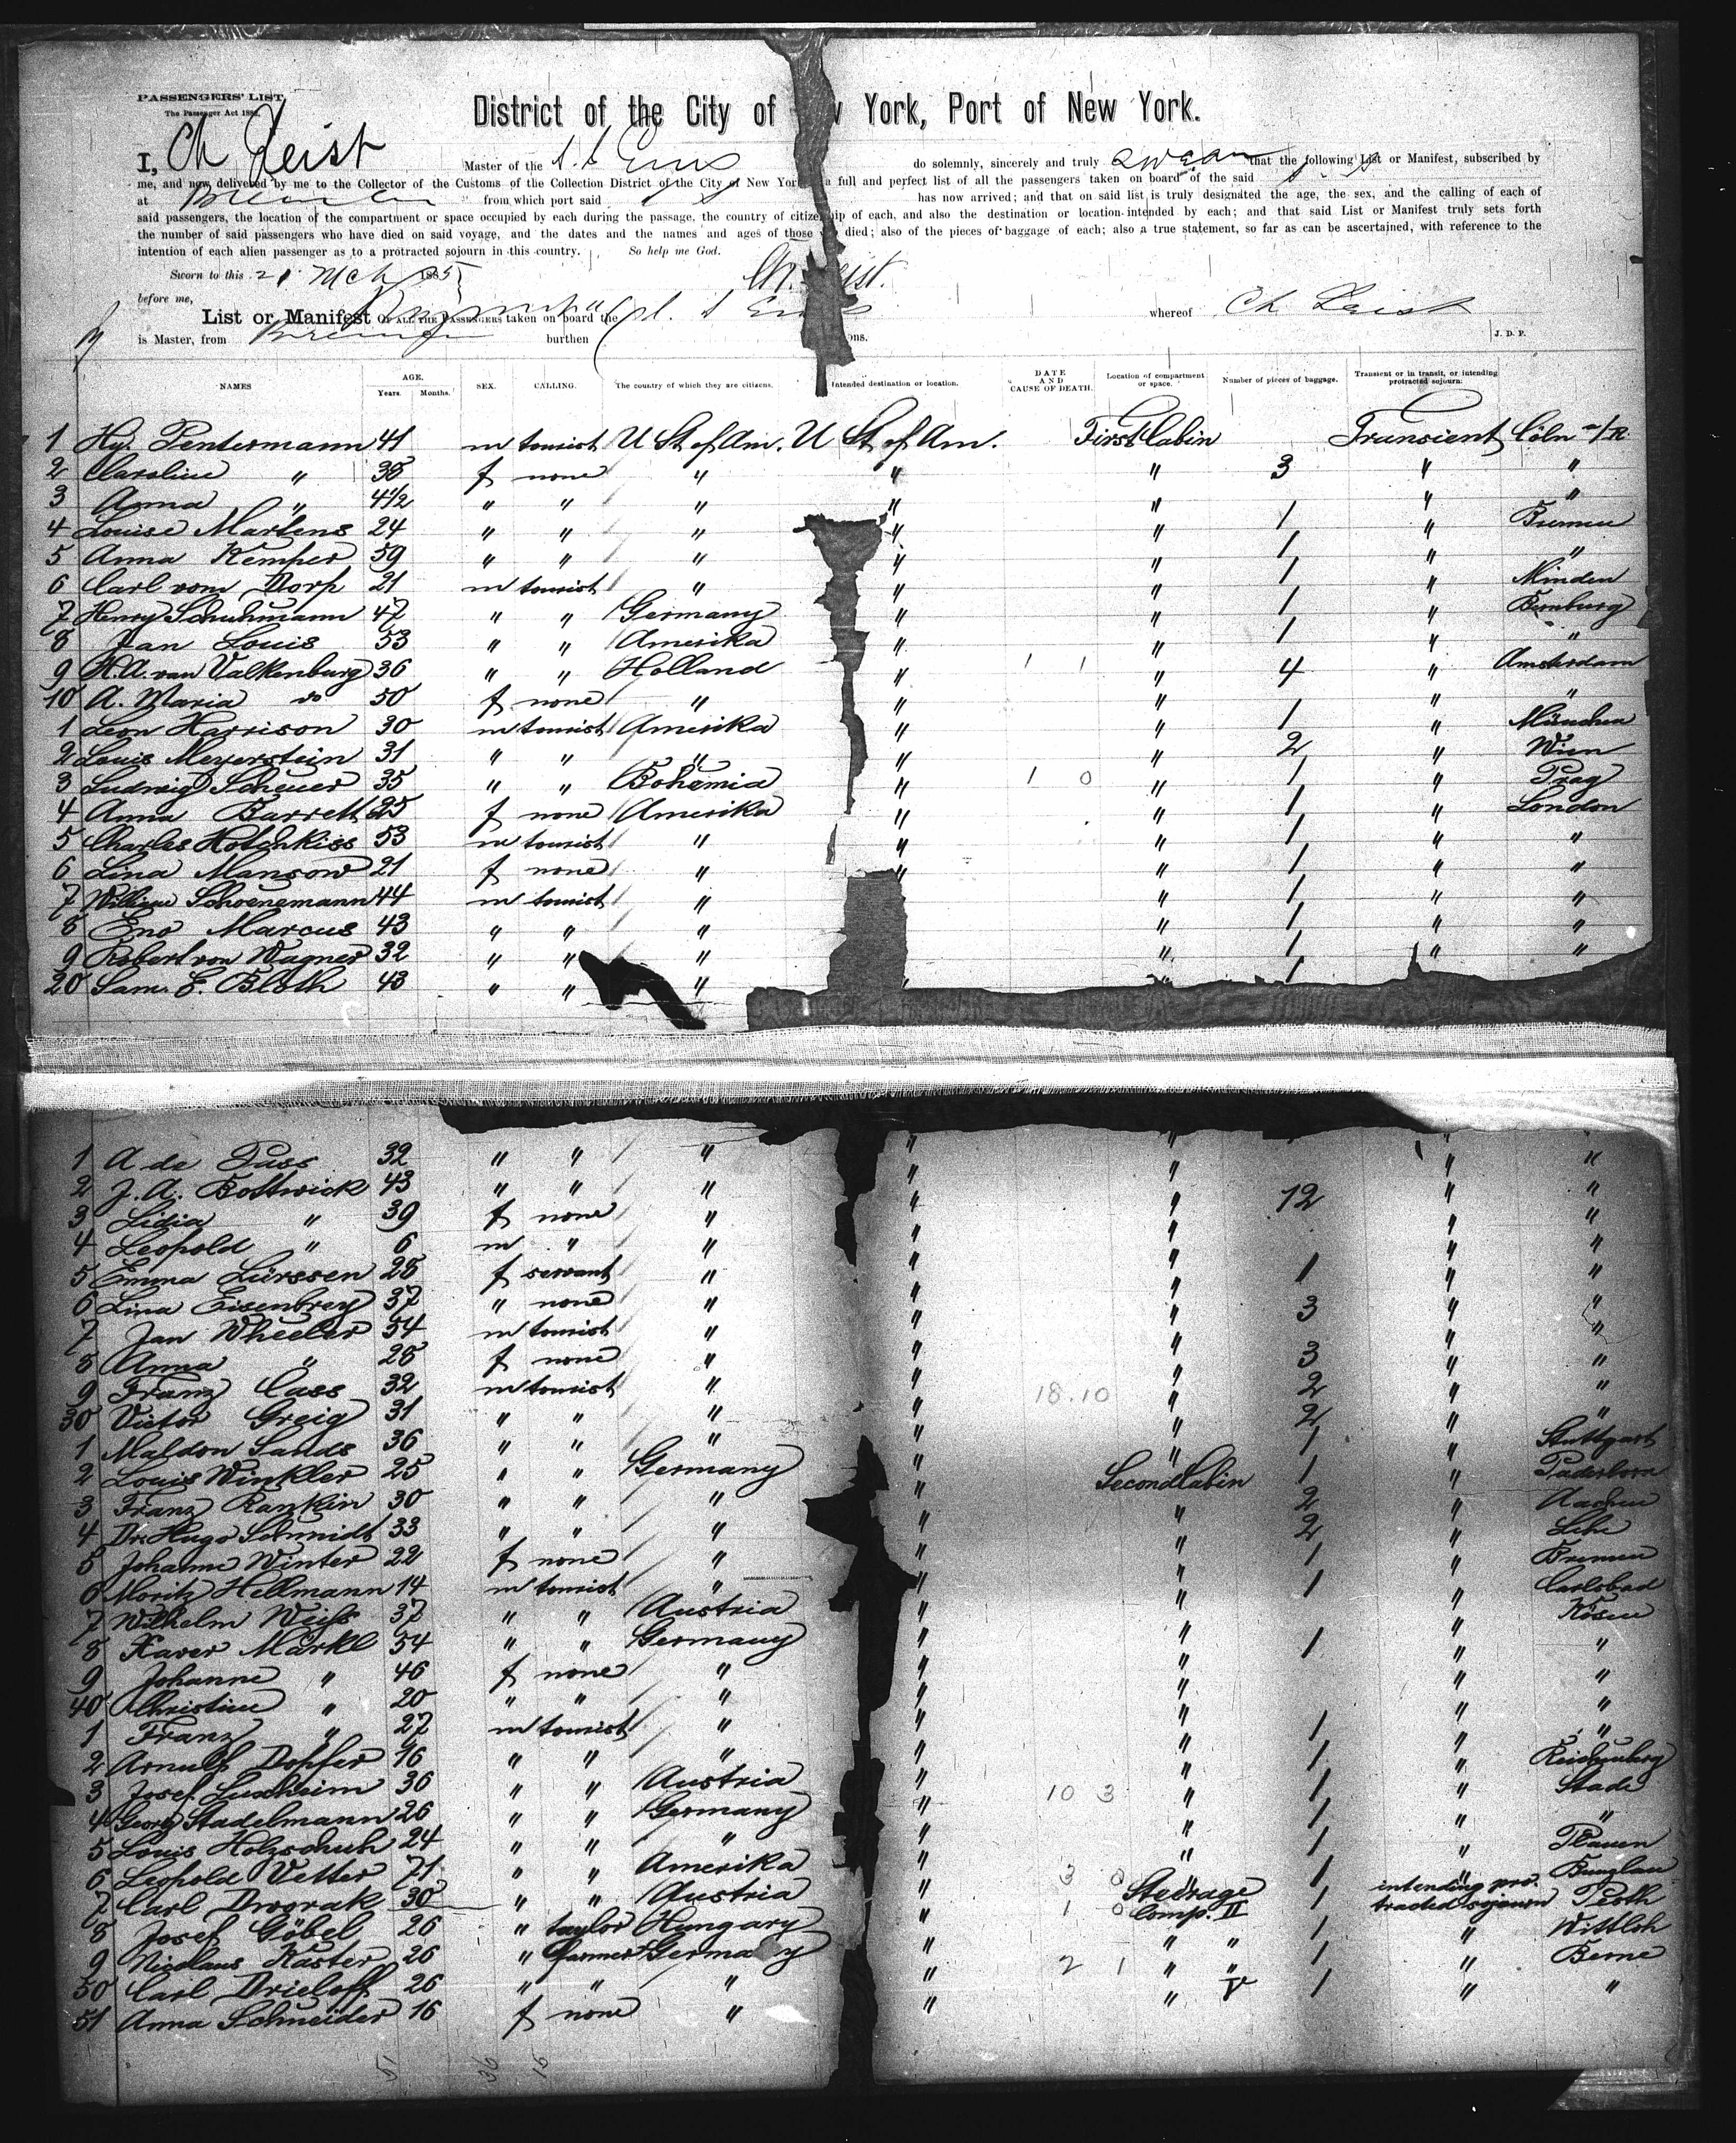 PASSENGERS' LIST.
The Passenger Act 188
District of the City of w York, Port of New York.
I, Ch Leist Master of the S.S. Ems do solemnly, sincerely and truly swear that the following List or Manifest, subscribed by
me, and now delivered by me to the Collector of the Customs of the Collection District of the City of New York a full and perfect list of all the passengers taken on board of the said
at Bremen from which port said has now arrived; and that on said list is truly designated the age, the sex, and the calling of each of
said passengers, the location of the compartment or space occupied by each during the passage, the country of citizenship of each, and also the destination or location intended by each; and that said List or Manifest truly sets forth
the number of said passengers who have died on said voyage, and the dates and the names and ages of those died; also of the pieces of baggage of each; also a true statement, so far as can be ascertained, with reference to the
intention of each alien passenger as to a protracted sojourn in this country. So help me God.
Sworn to this 21 Mch 1885 Ch. Leist.
before me,
List or Manifest OF ALL THE PASSENGERS taken on board the S. S Ems whereof Ch Leist
is Master, from Bremen burthen ons. J. D. P.
NAMES AGE. Years. Months. SEX. CALLING. The country of which they are citizens. Intended destination or location. DATE AND CAUSE OF DEATH. Location of compartment or space. Number of pieces of baggage. Transient or in transit, or intending protracted sojourn.
1 Hy. Pentermann 41 m tourist U St of Am. U St of Am. First Cabin Transient Cöln a/R.
2 Caroline " 38 f none " " " 3 " "
3 Anna " 4 1/2 " " " " " " "
4 Louise Martens 24 " " " " " 1 " Bremen
5 Anna Kemper 59 " " " " " 1 " "
6 Carl vom Dorp 21 m tourist " " " 1 " Minden
7 Henry Schuhmann 47 " " Germany " " 1 " Bernburg
8 Jan Louis 53 " " Amerika " " 1 " "
9 H.A. van Valkenburg 36 " " Holland " 1 1 " 4 " Amsterdam
10 A. Maria do 50 f none " " " " "
1 Leon Harrison 30 m tourist Amerika " " 1 " München
2 Louis Meyerstein 31 " " " " " 2 " Wien
3 Ludwig Scheuer 35 " " Bohemia " 1 0 " 1 " Prag
4 Anna Barrett 25 f none Amerika " " 1 " London
5 Charles Hotchkiss 53 m tourist " " " 1 " "
6 Lina Mansow 21 f none " " " 1 " "
7 William Schoenemann 44 m tourist " " 1 " "
8 Eno Marcus 43 " " " " 1 " "
9 Robert von Wagner 32 " " " " 1 " "
20 Sam. E. Bloth 43 " " " " 1
1 A de Tuss 32 " " " " " " "
2 J. A. Bostwick 43 " " " " " 12 " "
3 Lidia " 39 f none " " " " "
4 Leopold " 6 m " " " " " "
5 Emma Lürssen 28 f servant " " " 1 " "
6 Lina Eisenbrey 37 " none " " " 3 " "
7 Jan Wheeler 54 m tourist " " " " "
8 Anna " 28 f none " " " 3 " "
9 Franz Cass 32 m tourist " " 18.10 " 2 " "
30 Victor Greig 31 " " " " " 2 " "
1 Maldon Sands 36 " " " " " 1 " Stuttgart
2 Louis Winkler 25 " " Germany " Second Cabin 1 " Paderborn
3 Franz Rankin 30 " " " " " 2 " Aachen
4 Dr. Hugo Schmidt 33 " " " " " 2 " Lehe
5 Johanne Winter 22 f none " " " 1 " Bremen
6 Moritz Hellmann 14 m tourist " " " 1 " Carlsbad
7 Wilhelm Weiss 37 " " Austria " " " Kösen
8 Xaver Märkl 54 " " Germany " " 1 " "
9 Johanne " 46 f none " " " " "
40 Christine " 20 " " " " " " "
1 Franz " 27 m tourist " " " 1 " "
2 Arnulf Dopfer 16 " " " " " 1 " Reichenberg
3 Josef Luxheim 36 " " Austria " 10 3 " 1 " Stade
4 Georg Stadelmann 26 " " Germany " " 1 " "
5 Louis Holzschuh 24 " " " " " 1 " Plauen
6 Leopold Vetter 71 " " Amerika " 3 0 " 1 " Bunzlau
7 Carl Dworak 30 " " Austria " 1 0 Steerage Comp. II 1 intending protracted sojourn Pesth
8 Josef Göbel 26 " taylor Hungary " " " 1 " Wittlch
9 Nicolaus Kaster 26 " farmer Germany " 2 1 " " 1 " Berne
50 Carl Drieloff 26 " " " " " V 1 " "
51 Anna Schneider 16 f none "
51 36 15